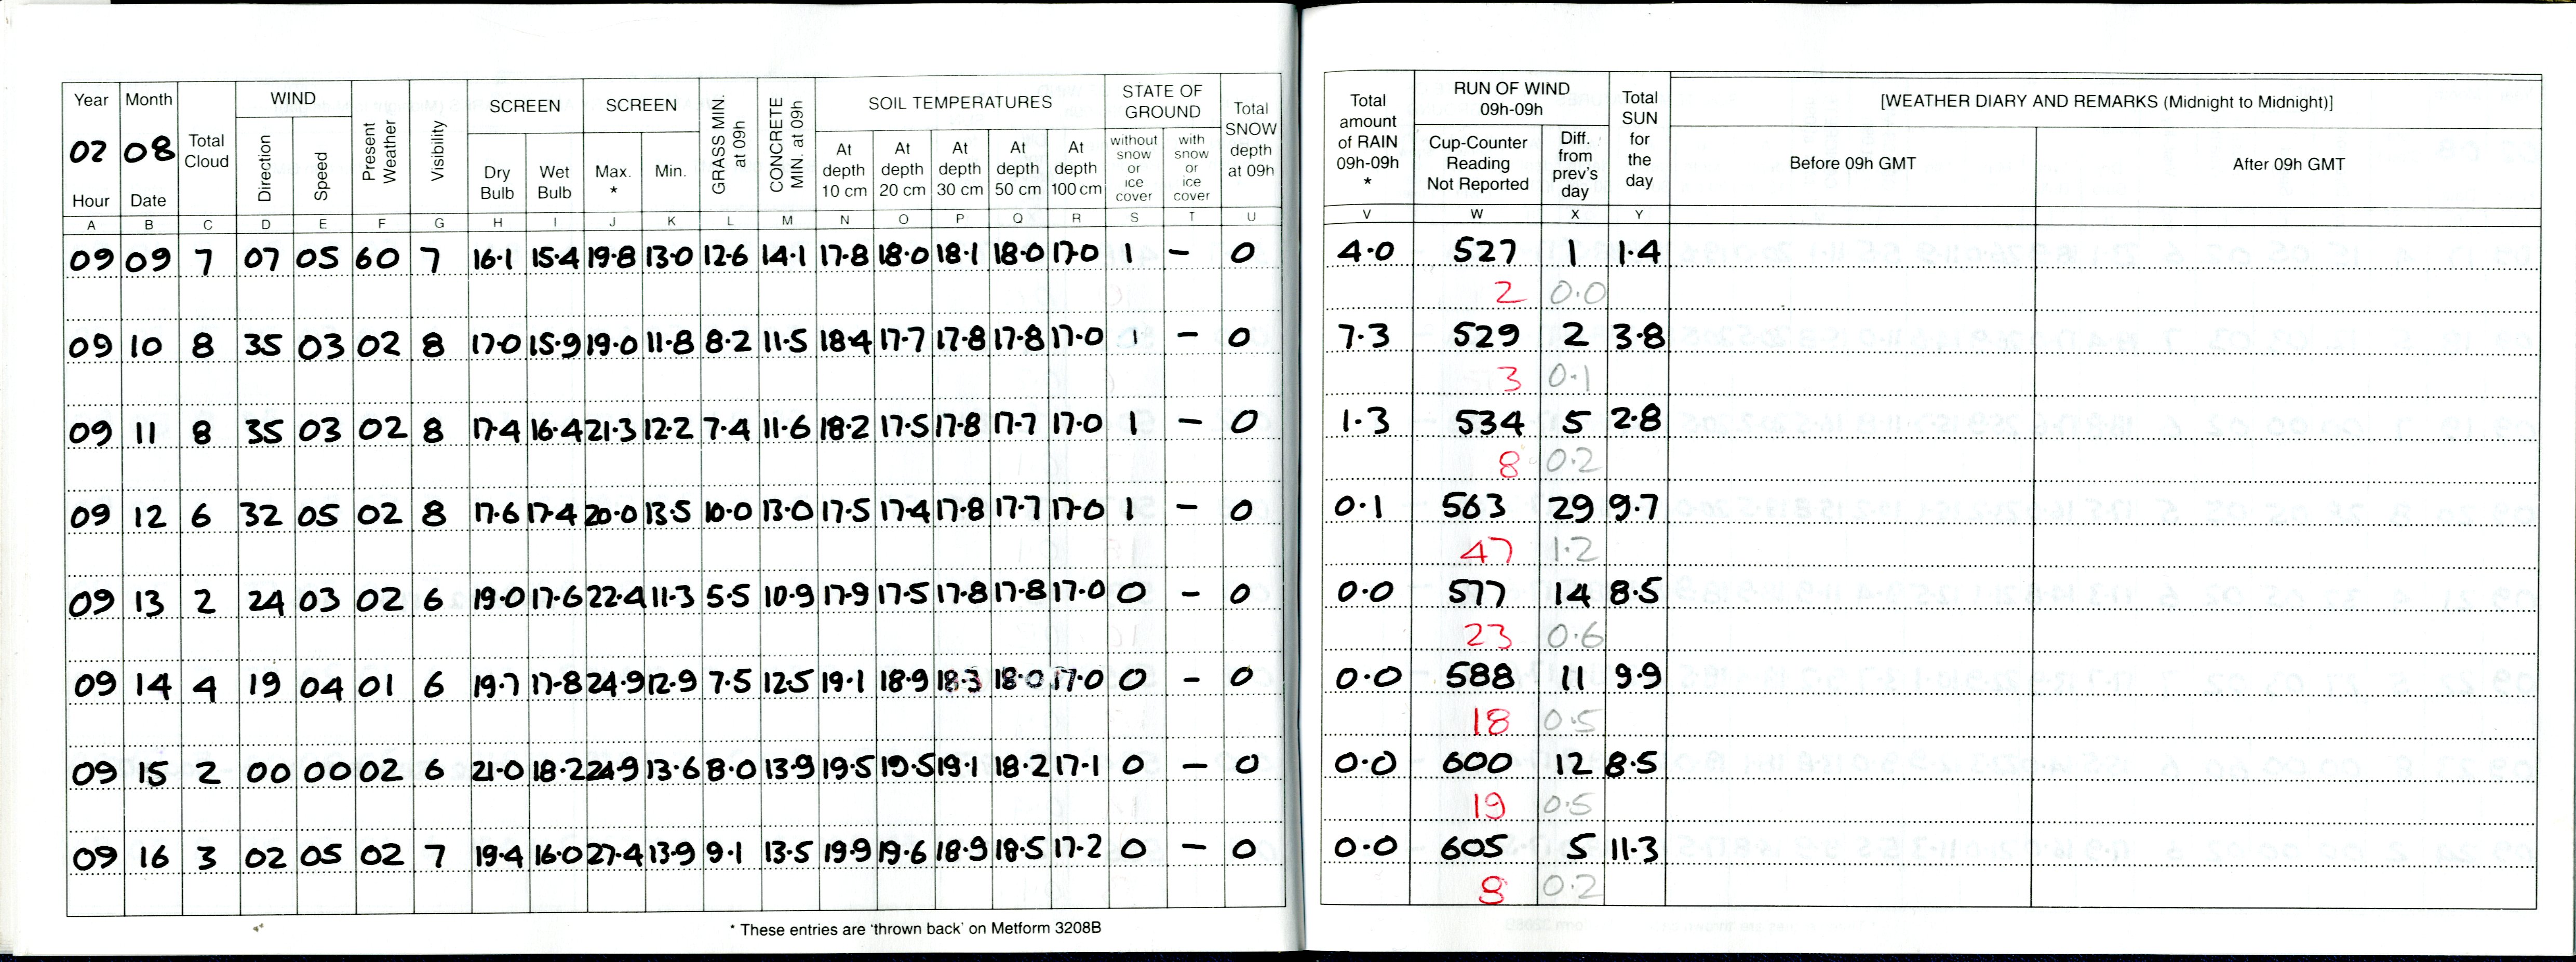 Year Month Total Cloud WIND Present Weather Visibility SCREEN SCREEN GRASS MIN. at 09h CONCRETE MIN. at 09h SOIL TEMPERATURES STATE OF GROUND Total SNOW depth at 09h
02 08 Direction Speed Dry Bulb Wet Bulb Max. * Min. At depth 10 cm At depth 20 cm At depth 30 cm At depth 50 cm At depth 100 cm without snow or ice cover with snow or ice cover
Hour Date
A B C D E F G H I J K L M N O P Q R S T U
09 09 7 07 05 60 7 16.1 15.4 19.8 13.0 12.6 14.1 17.8 18.0 18.1 18.0 17.0 1 – 0
09 10 8 35 03 02 8 17.0 15.9 19.0 11.8 8.2 11.5 18.4 17.7 17.8 17.8 17.0 1 – 0
09 11 8 35 03 02 8 17.4 16.4 21.3 12.2 7.4 11.6 18.2 17.5 17.8 17.7 17.0 1 – 0
09 12 6 32 05 02 8 17.6 17.4 20.0 13.5 10.0 13.0 17.5 17.4 17.8 17.7 17.0 1 – 0
09 13 2 24 03 02 6 19.0 17.6 22.4 11.3 5.5 10.9 17.9 17.5 17.8 17.8 17.0 0 – 0
09 14 4 19 04 01 6 19.7 17.8 24.9 12.9 7.5 12.5 19.1 18.9 18.3 18.0 17.0 0 – 0
09 15 2 00 00 02 6 21.0 18.2 24.9 13.6 8.0 13.9 19.5 19.5 19.1 18.2 17.1 0 – 0
09 16 3 02 05 02 7 19.4 16.0 27.4 13.9 9.1 13.5 19.9 19.6 18.9 18.5 17.2 0 – 0
* These entries are 'thrown back' on Metform 3208B
Total amount of RAIN 09h-09h * RUN OF WIND 09h-09h Total SUN for the day [WEATHER DIARY AND REMARKS (Midnight to Midnight)]
Cup-Counter Reading Not Reported Diff. from prev's day Before 09h GMT After 09h GMT
V W X Y
4.0 527 1 1.4
2 0.0
7.3 529 2 3.8
3 0.1
1.3 534 5 2.8
8 0.2
0.1 563 29 9.7
47 1.2
0.0 577 14 8.5
23 0.6
0.0 588 11 9.9
18 0.5
0.0 600 12 8.5
19 0.5
0.0 605 5 11.3
8 0.2